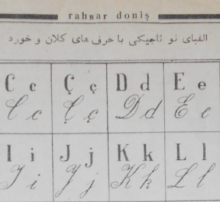 rahnar doniş
الفبای نو تاجیکی با حرف های کلان و خورد
C c Ç ç D d E e
C c Ç ç D d E e
I i J j K k L l
I i J j K k L l